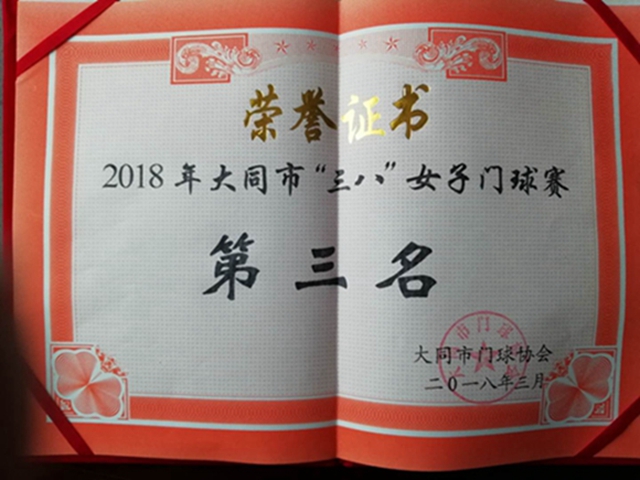 荣誉证书
2018年大同市“三八”女子门球赛
第三名
大同市门球协会
二〇一八年三月